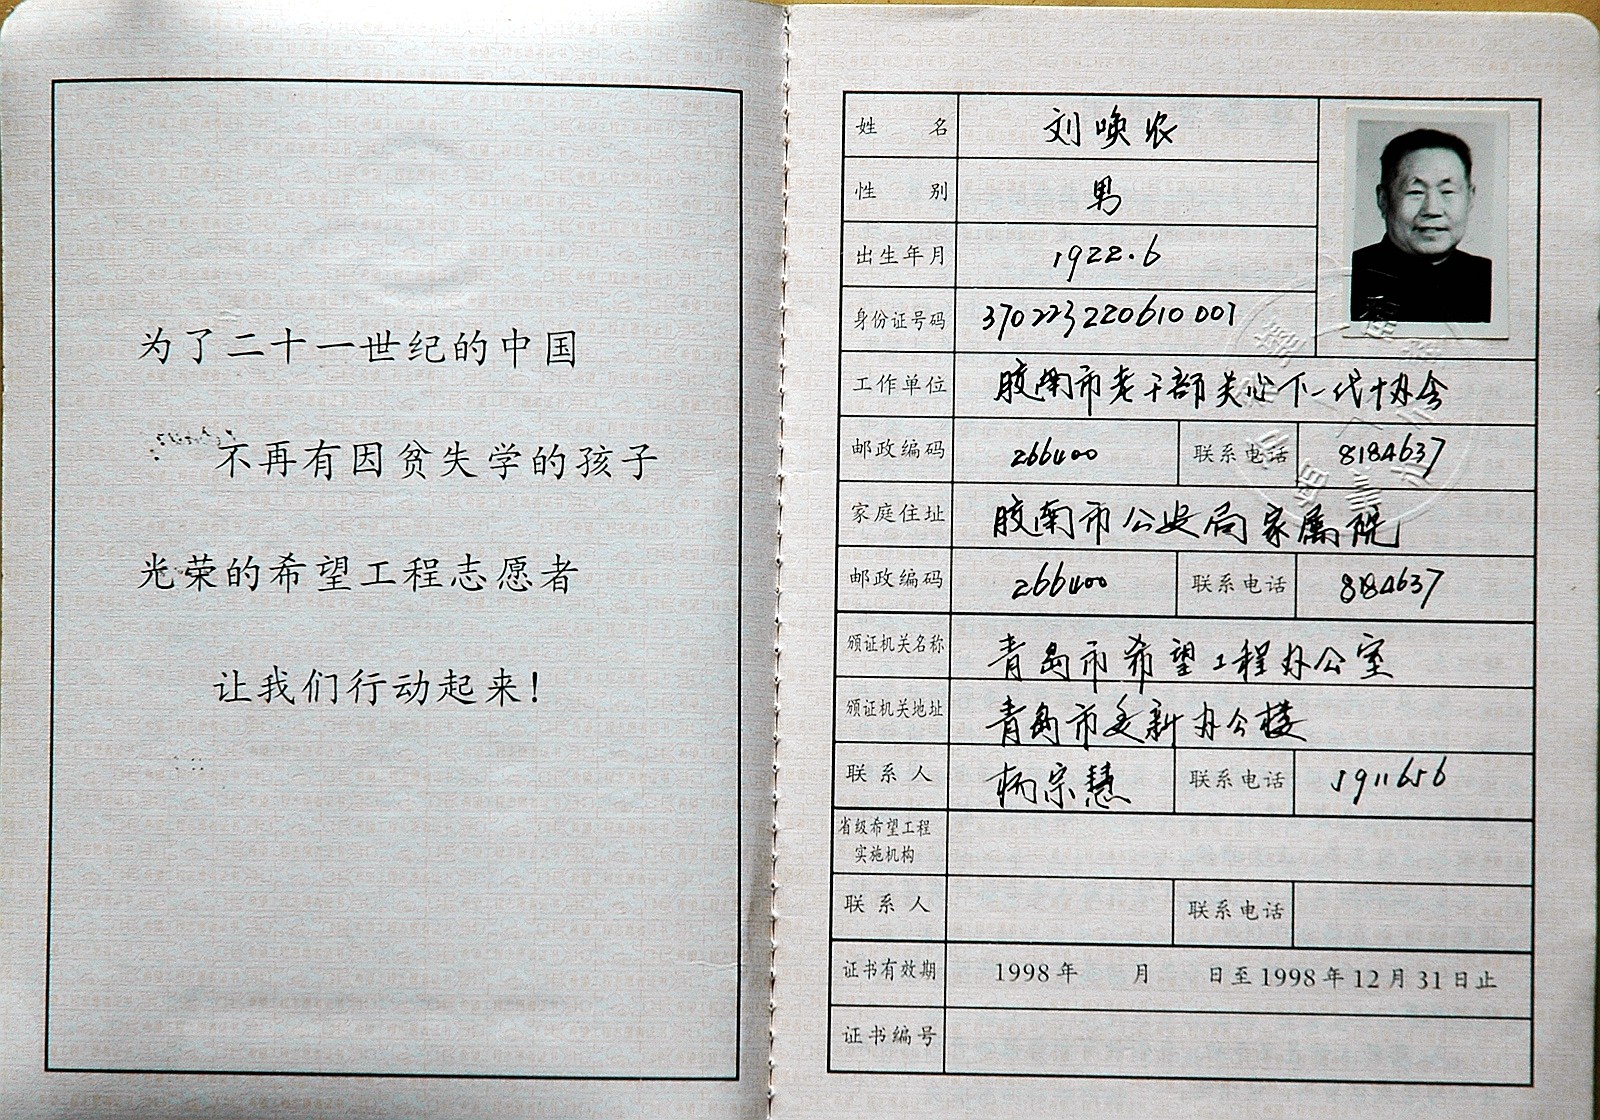 为了二十一世纪的中国
不再有因贫失学的孩子
光荣的希望工程志愿者
让我们行动起来!
姓 名 刘唤农
性 别 男
出生年月 1922.6
身份证号码 370223220610001
工作单位 胶南市老干部关心下一代协会
邮政编码 266400 联系电话 8184637
家庭住址 胶南市公安局家属院
邮政编码 266400 联系电话 8184637
颁证机关名称 青岛市希望工程办公室
颁证机关地址 青岛市 新办公楼
联系人 杨宗慧 联系电话 5911656
省级希望工程
实施机构
联系人 联系电话
证书有效期 1998年 月 日至1998年12月31日止
证书编号